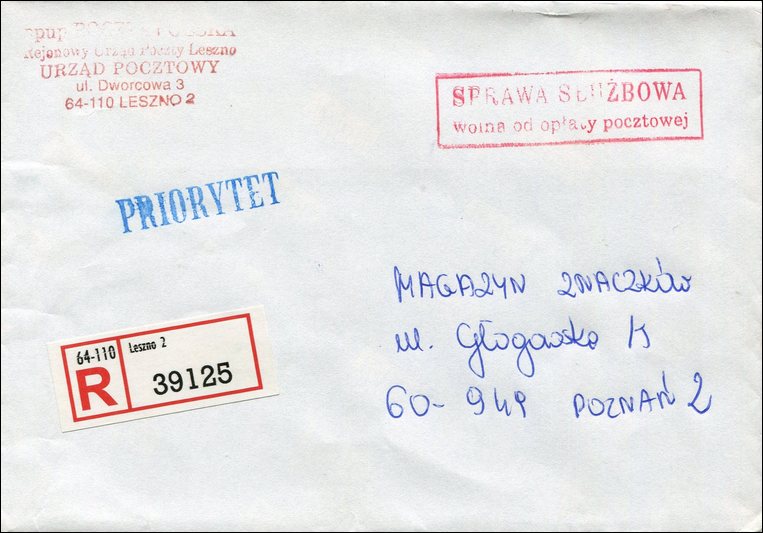 ppup POCZTA POLSKA
Rejonowy Urząd Poczty Leszno
URZĄD POCZTOWY
ul. Dworcowa 3
64-110 LESZNO 2
SPRAWA SŁUŻBOWA
wolna od opłaty pocztowej
PRIORYTET
MAGAZYN ZNACZKÓW
ul. Głogowska
60-949 POZNAŃ 2
64-110 Leszno 2
R 39125